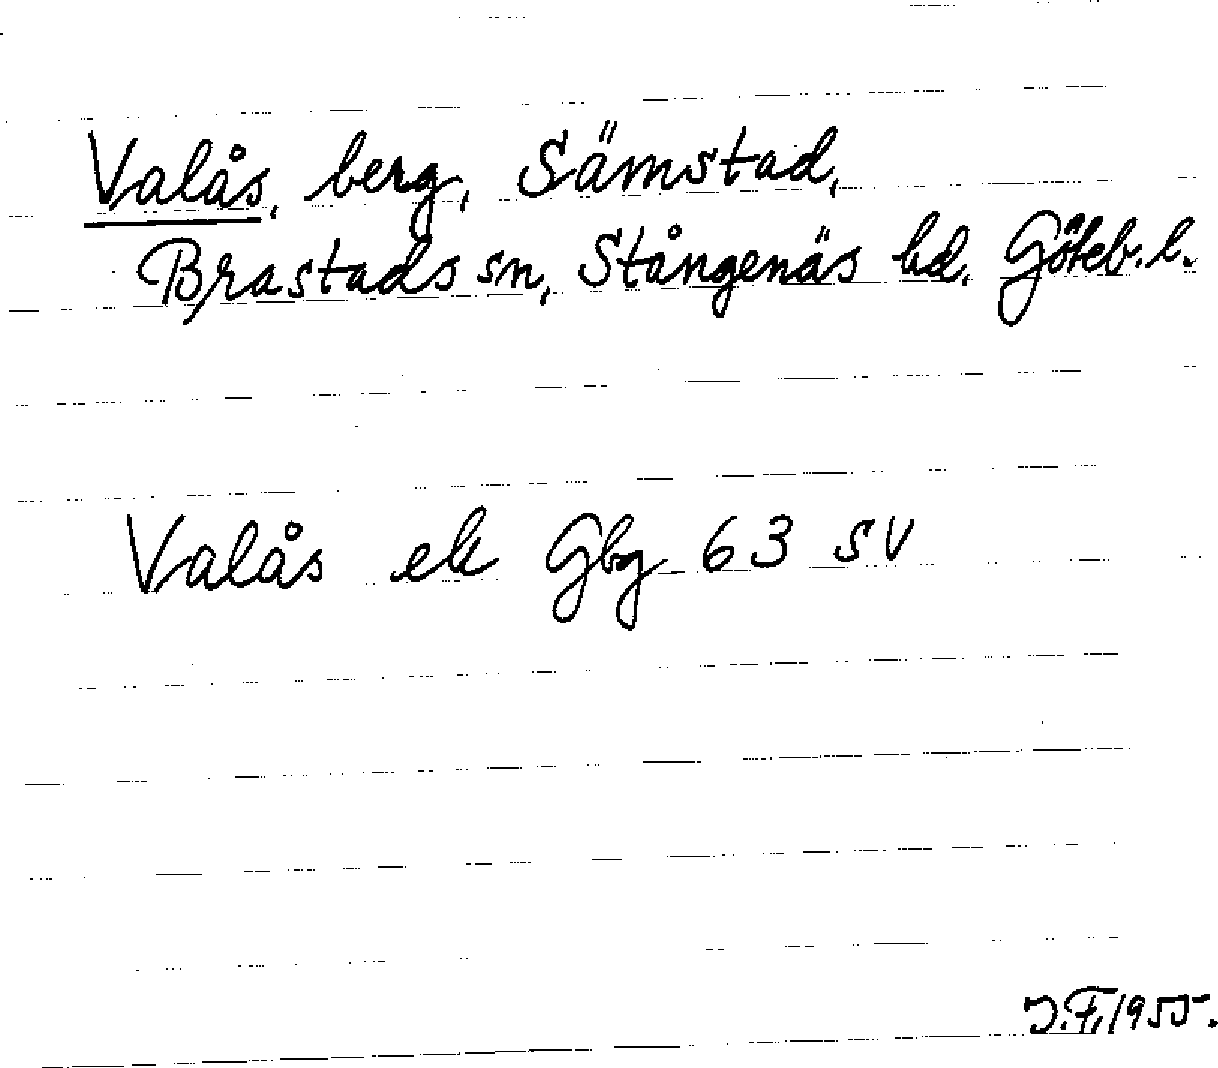 Valås, berg, Sämstad,
Brastads sn, Stångenäs hd. Göteb. l.
Valås ek Gbg 63 SV
J.F. 1955.